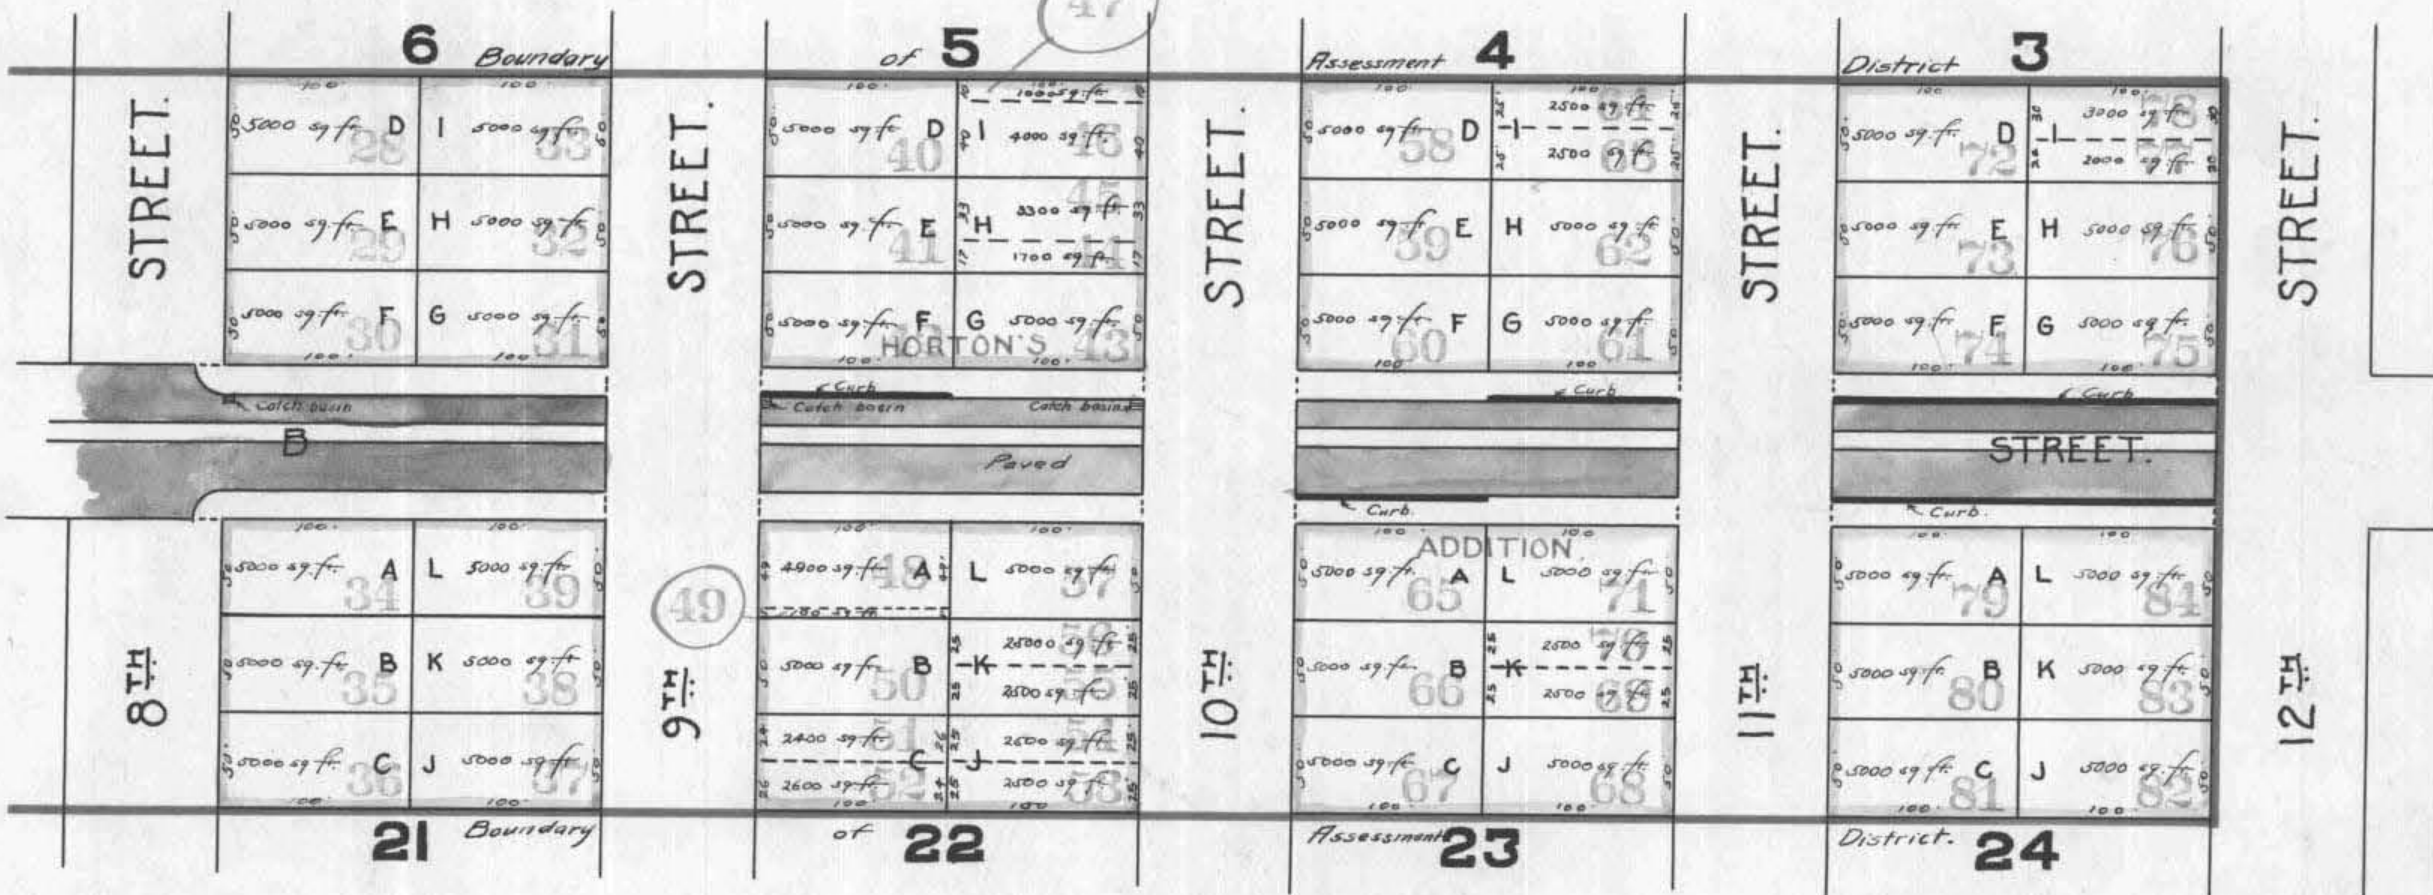 47
6 5 4 3
Boundary of Assessment District
STREET. STREET. STREET. STREET. STREET.
100. 100.
50 5000 sq ft. D 28
I 5000 sq ft. 33 50
50 5000 sq ft. E 29
H 5000 sq ft. 32 50
50 5000 sq. ft. F 30
G 5000 sq ft. 31 50
100. 100
100. 100.
50 5000 sq ft D 40
10 1000 sq ft 10
40 I 4000 sq ft. 46 40
50 5000 sq. ft. E 41
33 H 3300 sq ft. 45 33
17 1700 sq ft. 44 17
50 5000 sq. ft. F
G 5000 sq. ft. 43 50
HORTON'S
100. 100.
100 100.
50 5000 sq ft. D 58
25 I 2500 sq ft. 64 25
25 2500 sq ft. 63 25
50 5000 sq ft. E 59
H 5000 sq ft. 62 50
50 5000 sq ft. F 60
G 5000 sq ft. 61 50
100 100
100 100.
50 5000 sq ft. D 72
30 I 3000 sq ft. 78 30
20 2000 sq ft. 77 20
50 5000 sq ft. E 73
H 5000 sq ft. 76 50
50 5000 sq ft. F 74
G 5000 sq ft. 75 50
100. 100.
Curb Curb Curb
Catch basin Catch basin Catch basin
B STREET.
Paved
Curb. Curb.
100. 100.
50 5000 sq. ft. A 34
L 5000 sq. ft. 39 50
50 5000 sq. ft. B 35
K 5000 sq ft 38 50
50 5000 sq. ft. C 36
J 5000 sq ft. 37 50
100. 100.
49
100. 100.
49 4900 sq. ft. 48 A 49
100 sq ft.
L 5000 sq ft. 57 50
50 5000 sq ft. B 50
25 K 25000 sq ft. 56 25
25 2500 sq ft. 55 25
24 2400 sq ft. 51 26
C
26 2600 sq ft. 52 24
25 J 2500 sq ft. 54 25
25 2500 sq ft. 53 25
100 100
100 100
ADDITION.
50 5000 sq ft. A 65
L 5000 sq. ft. 71 50
50 5000 sq. ft. B 66
25 K 2500 sq ft. 70 25
25 2500 sq ft. 69 25
50 5000 sq ft. C 67
J 5000 sq ft. 68 50
100 100
100 100
50 5000 sq ft. A 79
L 5000 sq ft. 84 50
50 5000 sq ft. B 80
K 5000 sq ft. 83 50
50 5000 sq ft. C 81
J 5000 sq. ft. 82 50
100. 100.
8TH 9TH 10TH 11TH 12TH
Boundary of Assessment District.
21 22 23 24